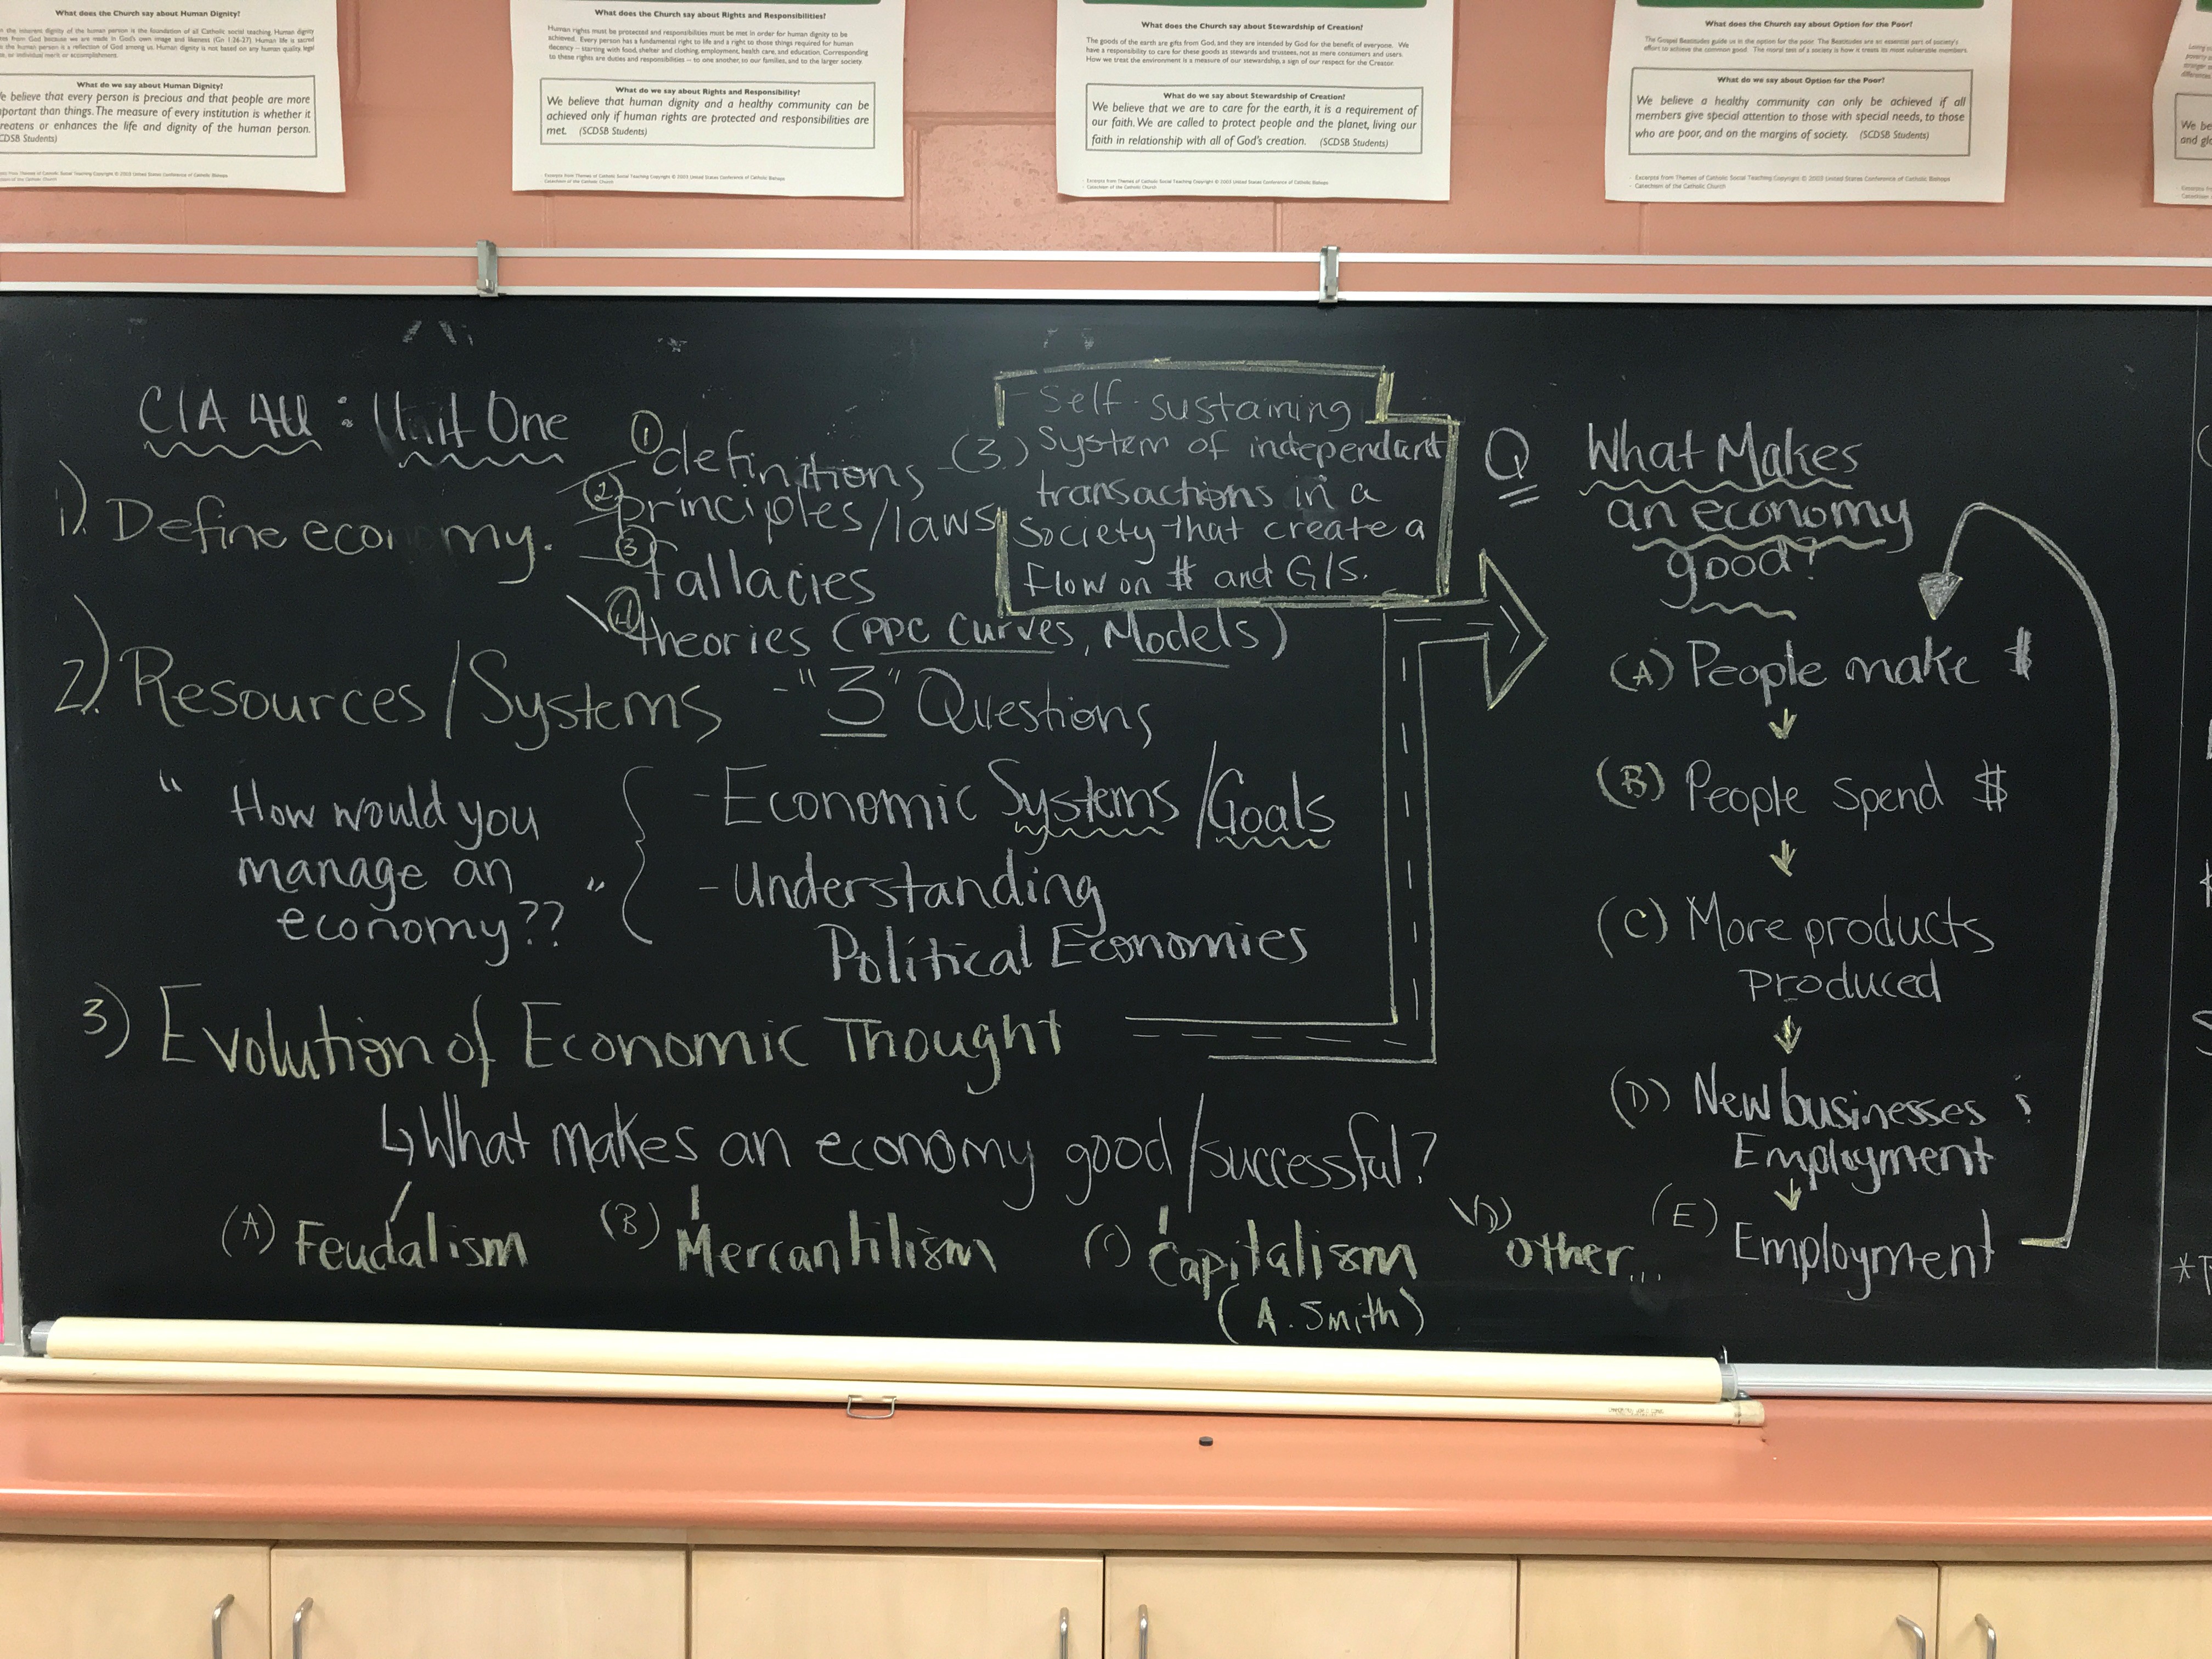 What does the Church say about Human Dignity?
the inherent dignity of the human person is the foundation of all Catholic social teaching. Human dignity
from God because we are made in God's own image and likeness (Gn 1:26-27). Human life is sacred
the human person is a reflection of God among us. Human dignity is not based on any human quality, legal
or individual merit or accomplishment.
What do we say about Human Dignity?
e believe that every person is precious and that people are more
portant than things. The measure of every institution is whether it
reatens or enhances the life and dignity of the human person.
CDSB Students)
What does the Church say about Rights and Responsibilities?
Human rights must be protected and responsibilities must be met in order for human dignity to be
achieved. Every person has a fundamental right to life and a right to those things required for human
decency -- starting with food, shelter and clothing, employment, health care, and education. Corresponding
to these rights are duties and responsibilities -- to one another, to our families, and to the larger society.
What do we say about Rights and Responsibility?
We believe that human dignity and a healthy community can be
achieved only if human rights are protected and responsibilities are
met. (SCDSB Students)
Excerpts from Themes of Catholic Social Teaching Copyright © 2003 United States Conference of Catholic Bishops
Catechism of the Catholic Church
What does the Church say about Stewardship of Creation?
The goods of the earth are gifts from God, and they are intended by God for the benefit of everyone. We
have a responsibility to care for these goods as stewards and trustees, not as mere consumers and users.
How we treat the environment is a measure of our stewardship, a sign of our respect for the Creator.
What do we say about Stewardship of Creation?
We believe that we are to care for the earth, it is a requirement of
our faith. We are called to protect people and the planet, living our
faith in relationship with all of God's creation. (SCDSB Students)
- Excerpts from Themes of Catholic Social Teaching Copyright © 2003 United States Conference of Catholic Bishops
- Catechism of the Catholic Church
What does the Church say about Option for the Poor?
The Gospel Beatitudes guide us in the option for the poor. The Beatitudes are an essential part of society's
effort to achieve the common good. The moral test of a society is how it treats its most vulnerable members.
What do we say about Option for the Poor?
We believe a healthy community can only be achieved if all
members give special attention to those with special needs, to those
who are poor, and on the margins of society. (SCDSB Students)
- Excerpts from Themes of Catholic Social Teaching Copyright © 2003 United States Conference of Catholic Bishops
- Catechism of the Catholic Church
We be
and glo
CIA 4U : Unit One
1). Define economy.
① definitions
② principles/laws
③ fallacies
④ theories (PPC Curves, Models)
- Self-sustaining
(3.) System of independant
transactions in a
Society that create a
Flow on $ and G/S.
2). Resources/Systems - "3" Questions
"How would you
manage an
economy??"
- Economic Systems/Goals
- Understanding
Political Economies
3) Evolution of Economic Thought
↳ What makes an economy good/successful?
(A) Feudalism
(B) Mercantilism
(C) Capitalism
(A. Smith)
(D) Other...
Q What Makes
an economy
good?
(A) People make $
(B) People spend $
(C) More products
produced
(D) New businesses
Employment
(E) Employment